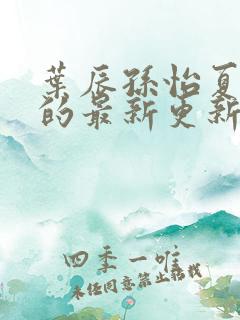 葉辰孫怡夏
的最新更新
四季一唯
未经同意禁止转载